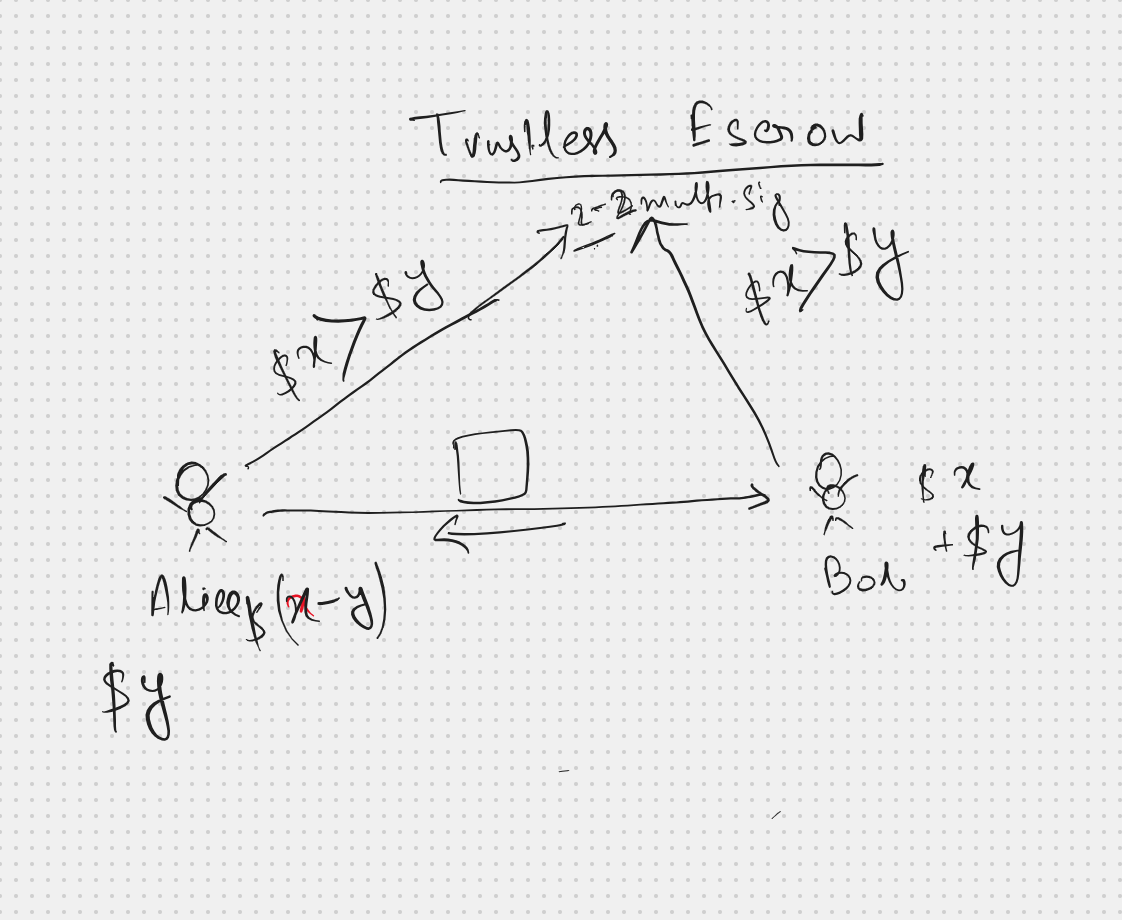 Trustless Escrow
2-2 multi-sig
$x > $y
$x > $y
Alice $(x-y)
$y
Bob
$x
+$y